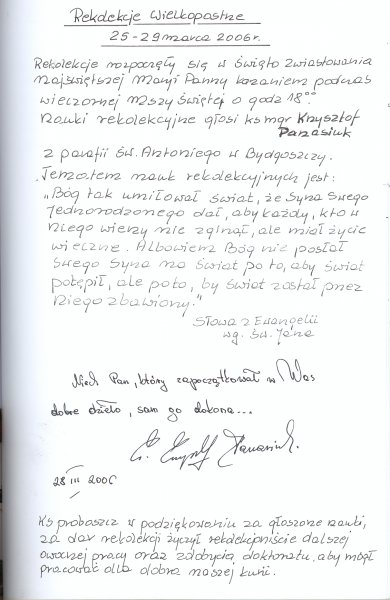 Rekolekcje Wielkopostne
25-29 marca 2006r.
Rekolekcje rozpoczęły się w Święto Zwiastowania
Najświętszej Maryi Panny kazaniem podczas
wieczornej Mszy Świętej o godz 18⁰⁰.
Nauki rekolekcyjne głosi ks mgr Krzysztof
Panasiuk
z parafii św. Antoniego w Bydgoszczy.
Tematem nauk rekolekcyjnych jest:
„Bóg tak umiłował świat, że Syna Swego
Jednorodzonego dał, aby każdy, kto w
Niego wierzy nie zginął, ale miał życie
wieczne. Albowiem Bóg nie posłał
Swego Syna na świat po to, aby świat
potępił, ale po to, by świat został przez
Niego zbawiony."
Słowa z Ewangelii
wg. Św. Jana
Niech Pan, który zapoczątkował w Was
dobre dzieło, sam go dokona...
Ks. Krzysztof Panasiuk.
28 III 2006
Ks proboszcz w podziękowaniu za głoszone nauki,
za dar rekolekcji życzył rekolekcjoniście dalszej
owocnej pracy oraz zdobycia doktoratu, aby mógł
pracować dla dobra naszej kurii.